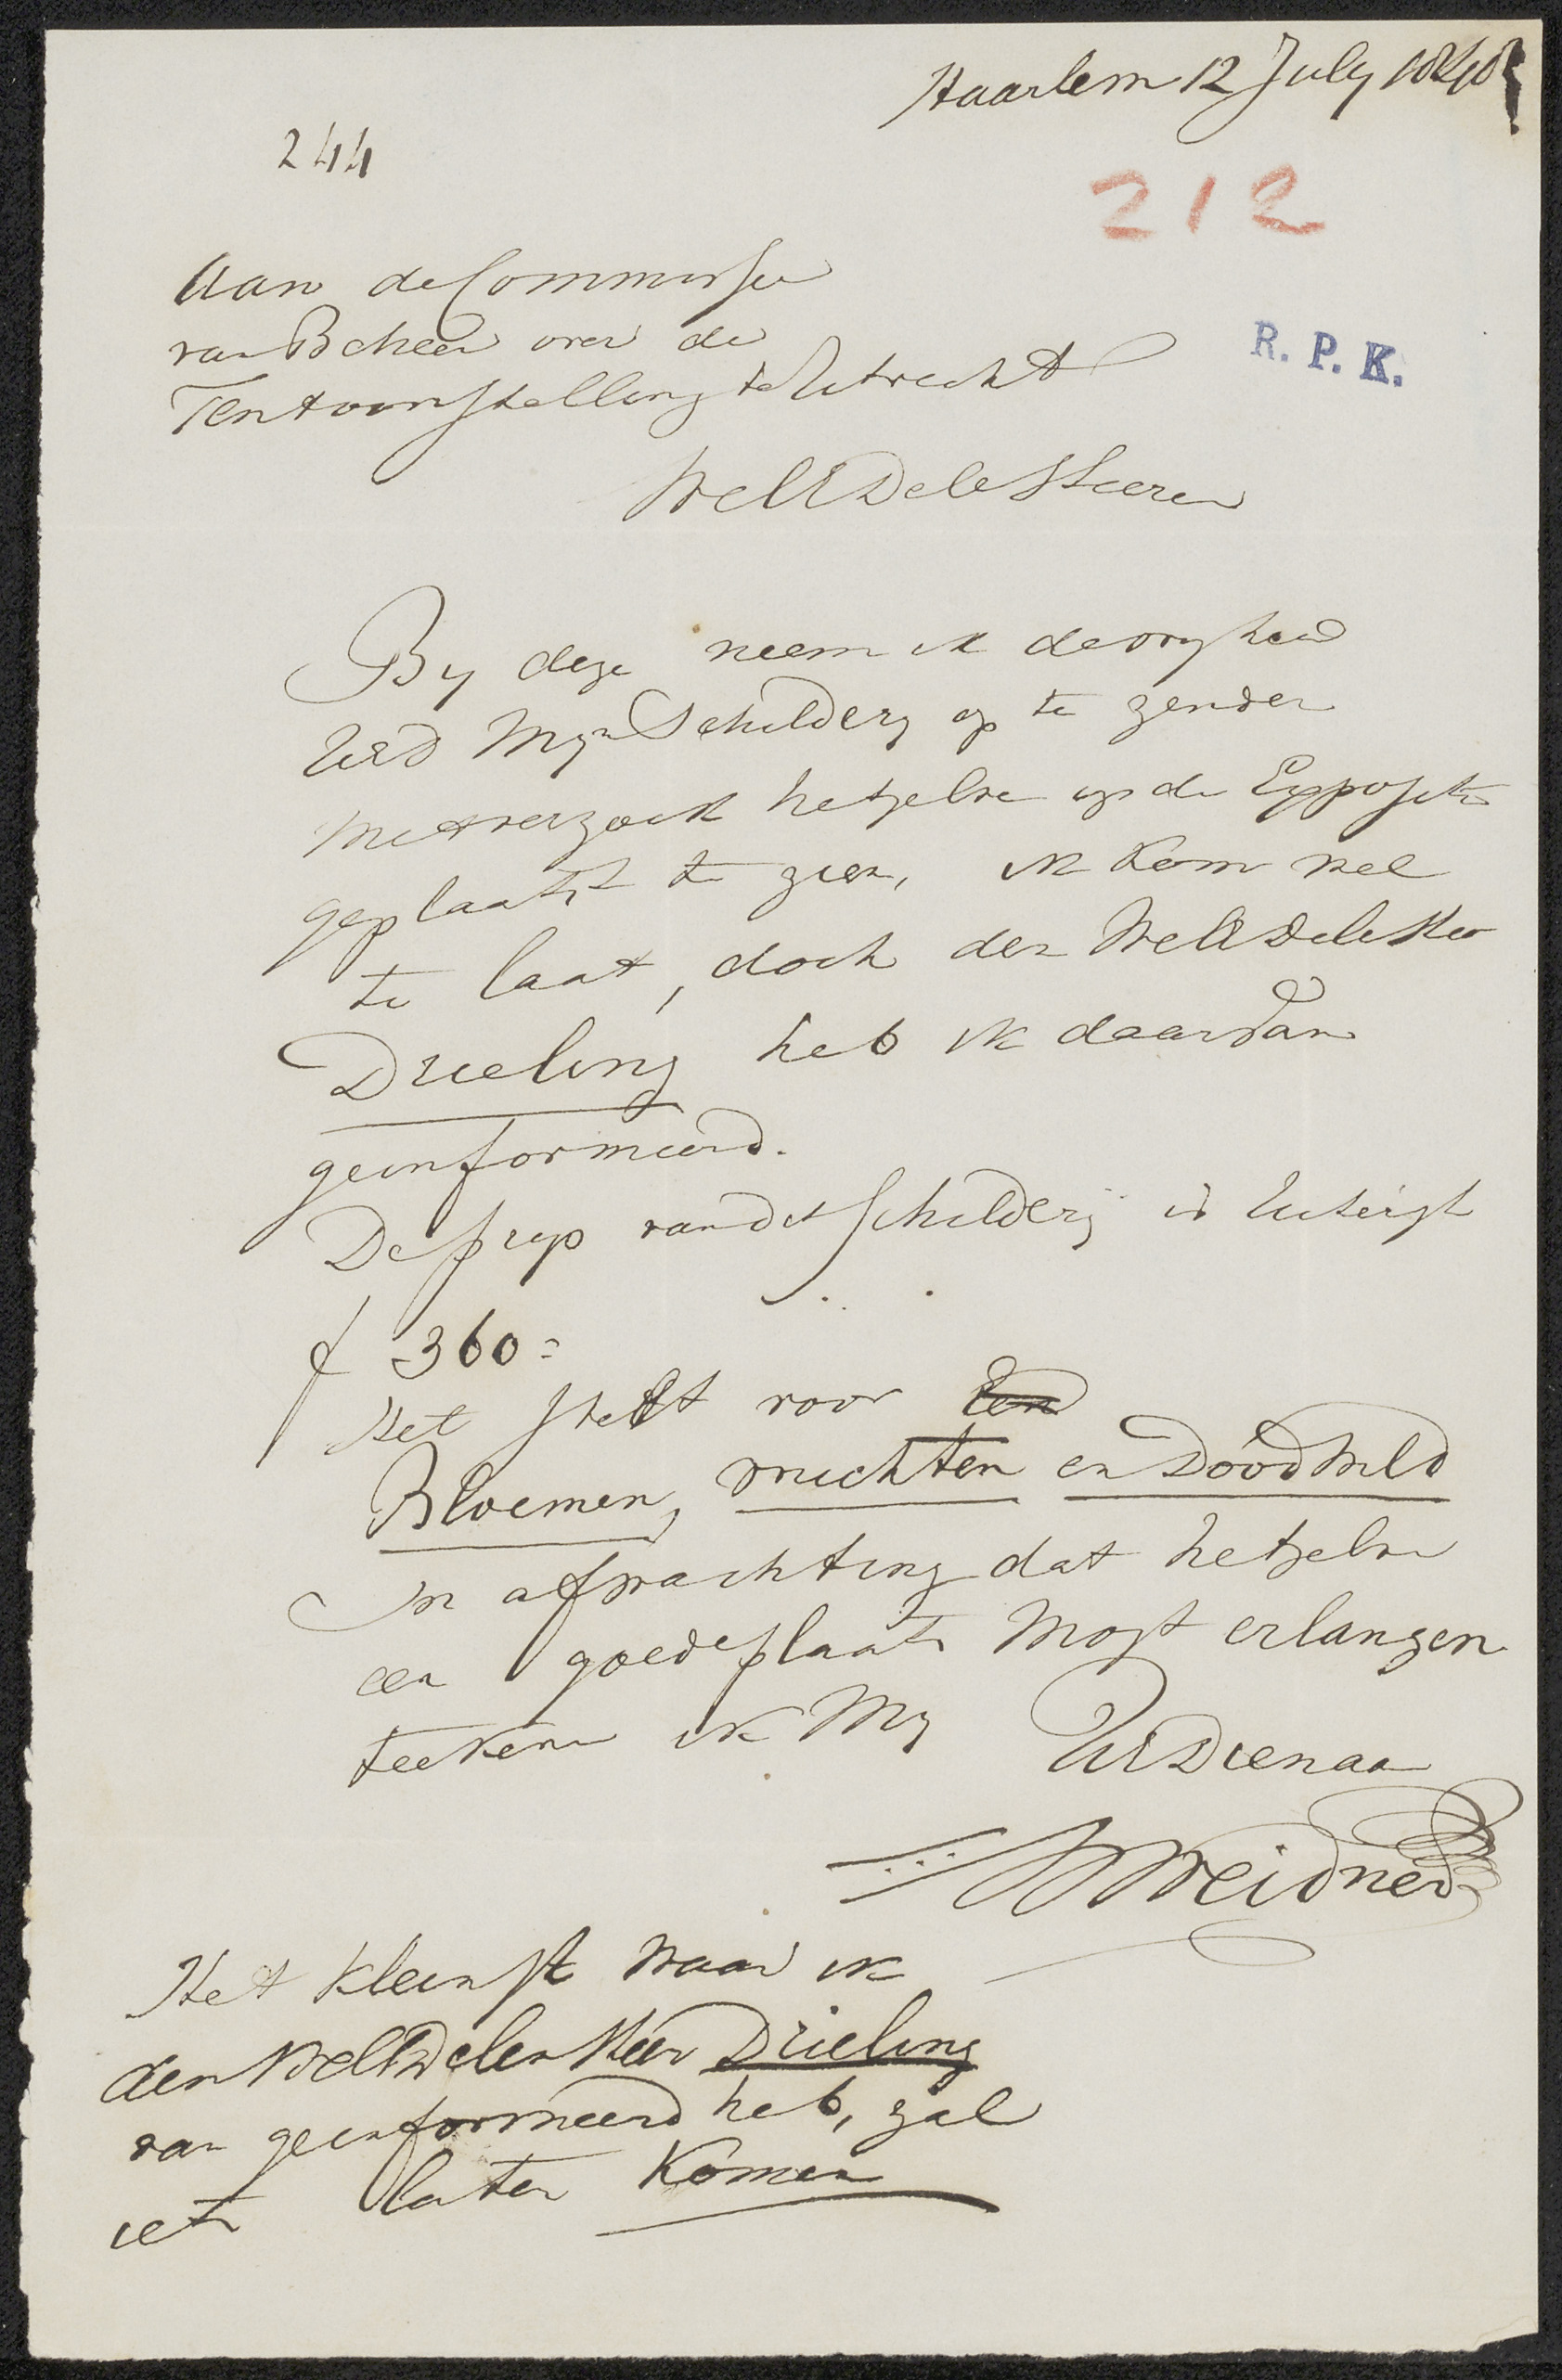 Haarlem 12 July 1848
244
212
Aan de Commissie
van Beheer over de
Tentoonstelling te Utrecht
R. P. K.
WelEDele Heeren
By deze neem ik de vryheid
UED Myn Schildery op te zenden
met verzoek hetzelve op de Expositie
geplaatst te zien, ik kom wel
te laat, doch den WelEDele Heer
Drieling heb ik daarvan
geinformeerd.
De prys van dit Schildery is Uiterst
f 360 =
Het stelt voor Een
Bloemen, vruchten en Dood Wild
In afwachting dat hetzelve
een goede plaats Mogt erlangen
teeken ik My UEDienaar
W Weidner
Het kleinste waar ik
den WelEDelen Heer Drieling
van geinformeerd heb, zal
iets later Komen